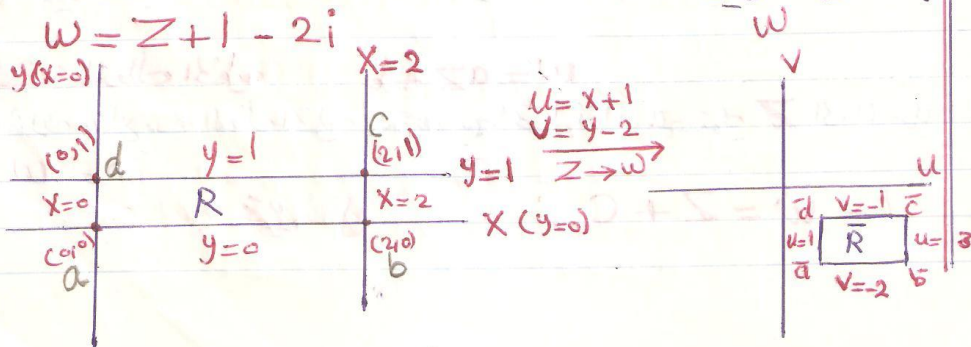 W = Z + 1 - 2i
y(x=0)
X=2
(0,1)
d
y=1
C
(2,1)
y=1
X=0
R
X=2
X (y=0)
(0,0)
y=0
(2,0)
a
b
u = x+1
V = y-2
Z → W
W
V
U
d̅
V=-1
c̅
u=1
R̅
u=3
a̅
V=-2
b̅